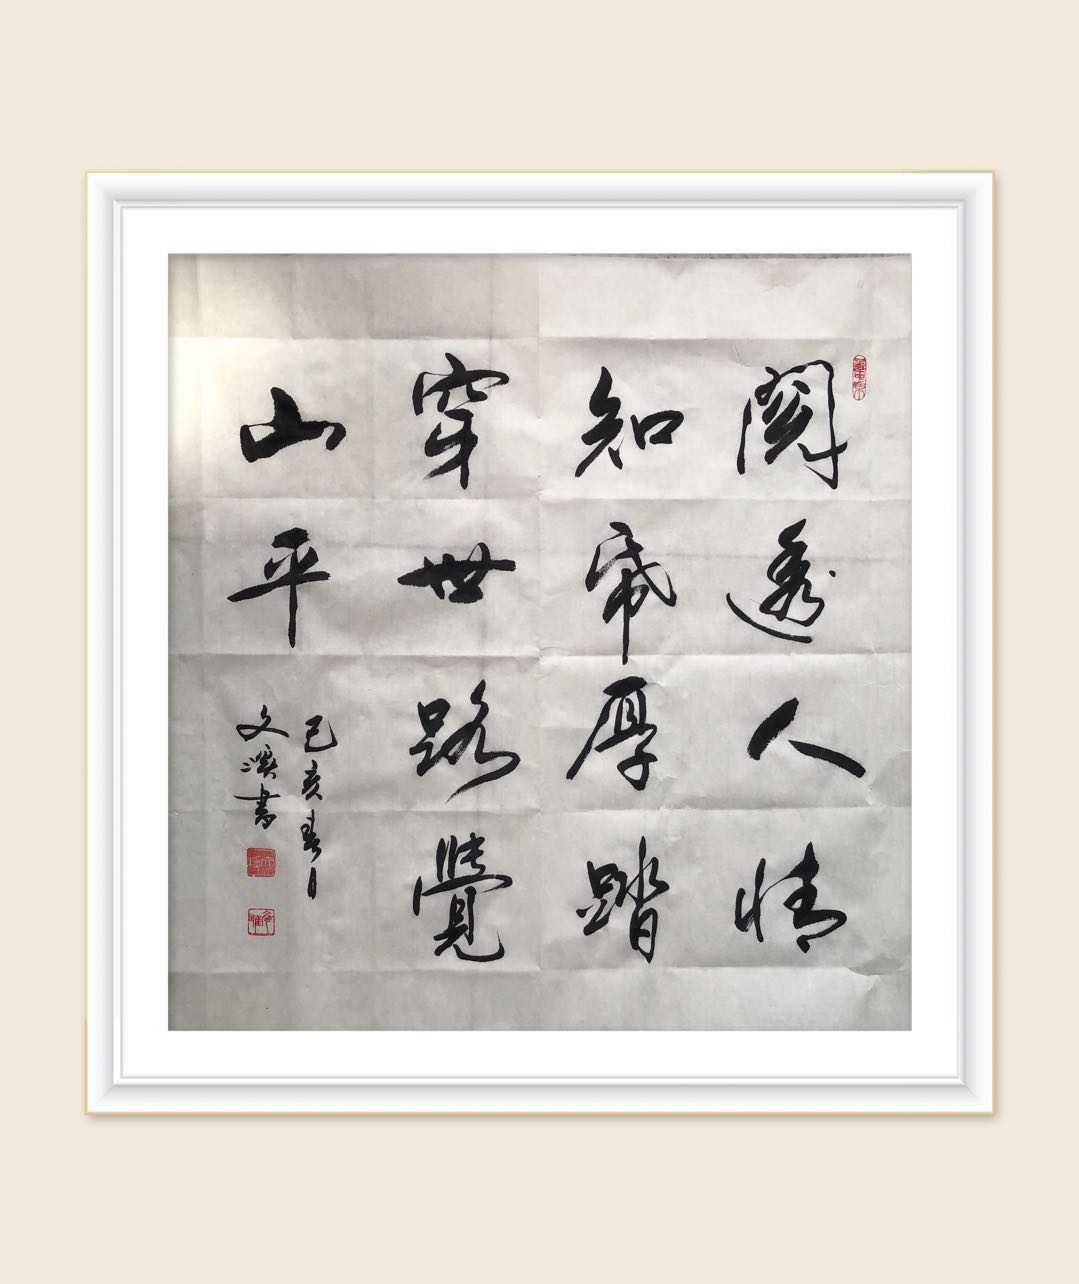 閱透人情
知帋厚踏
穿世路覺
山平
己亥春月
文溪書